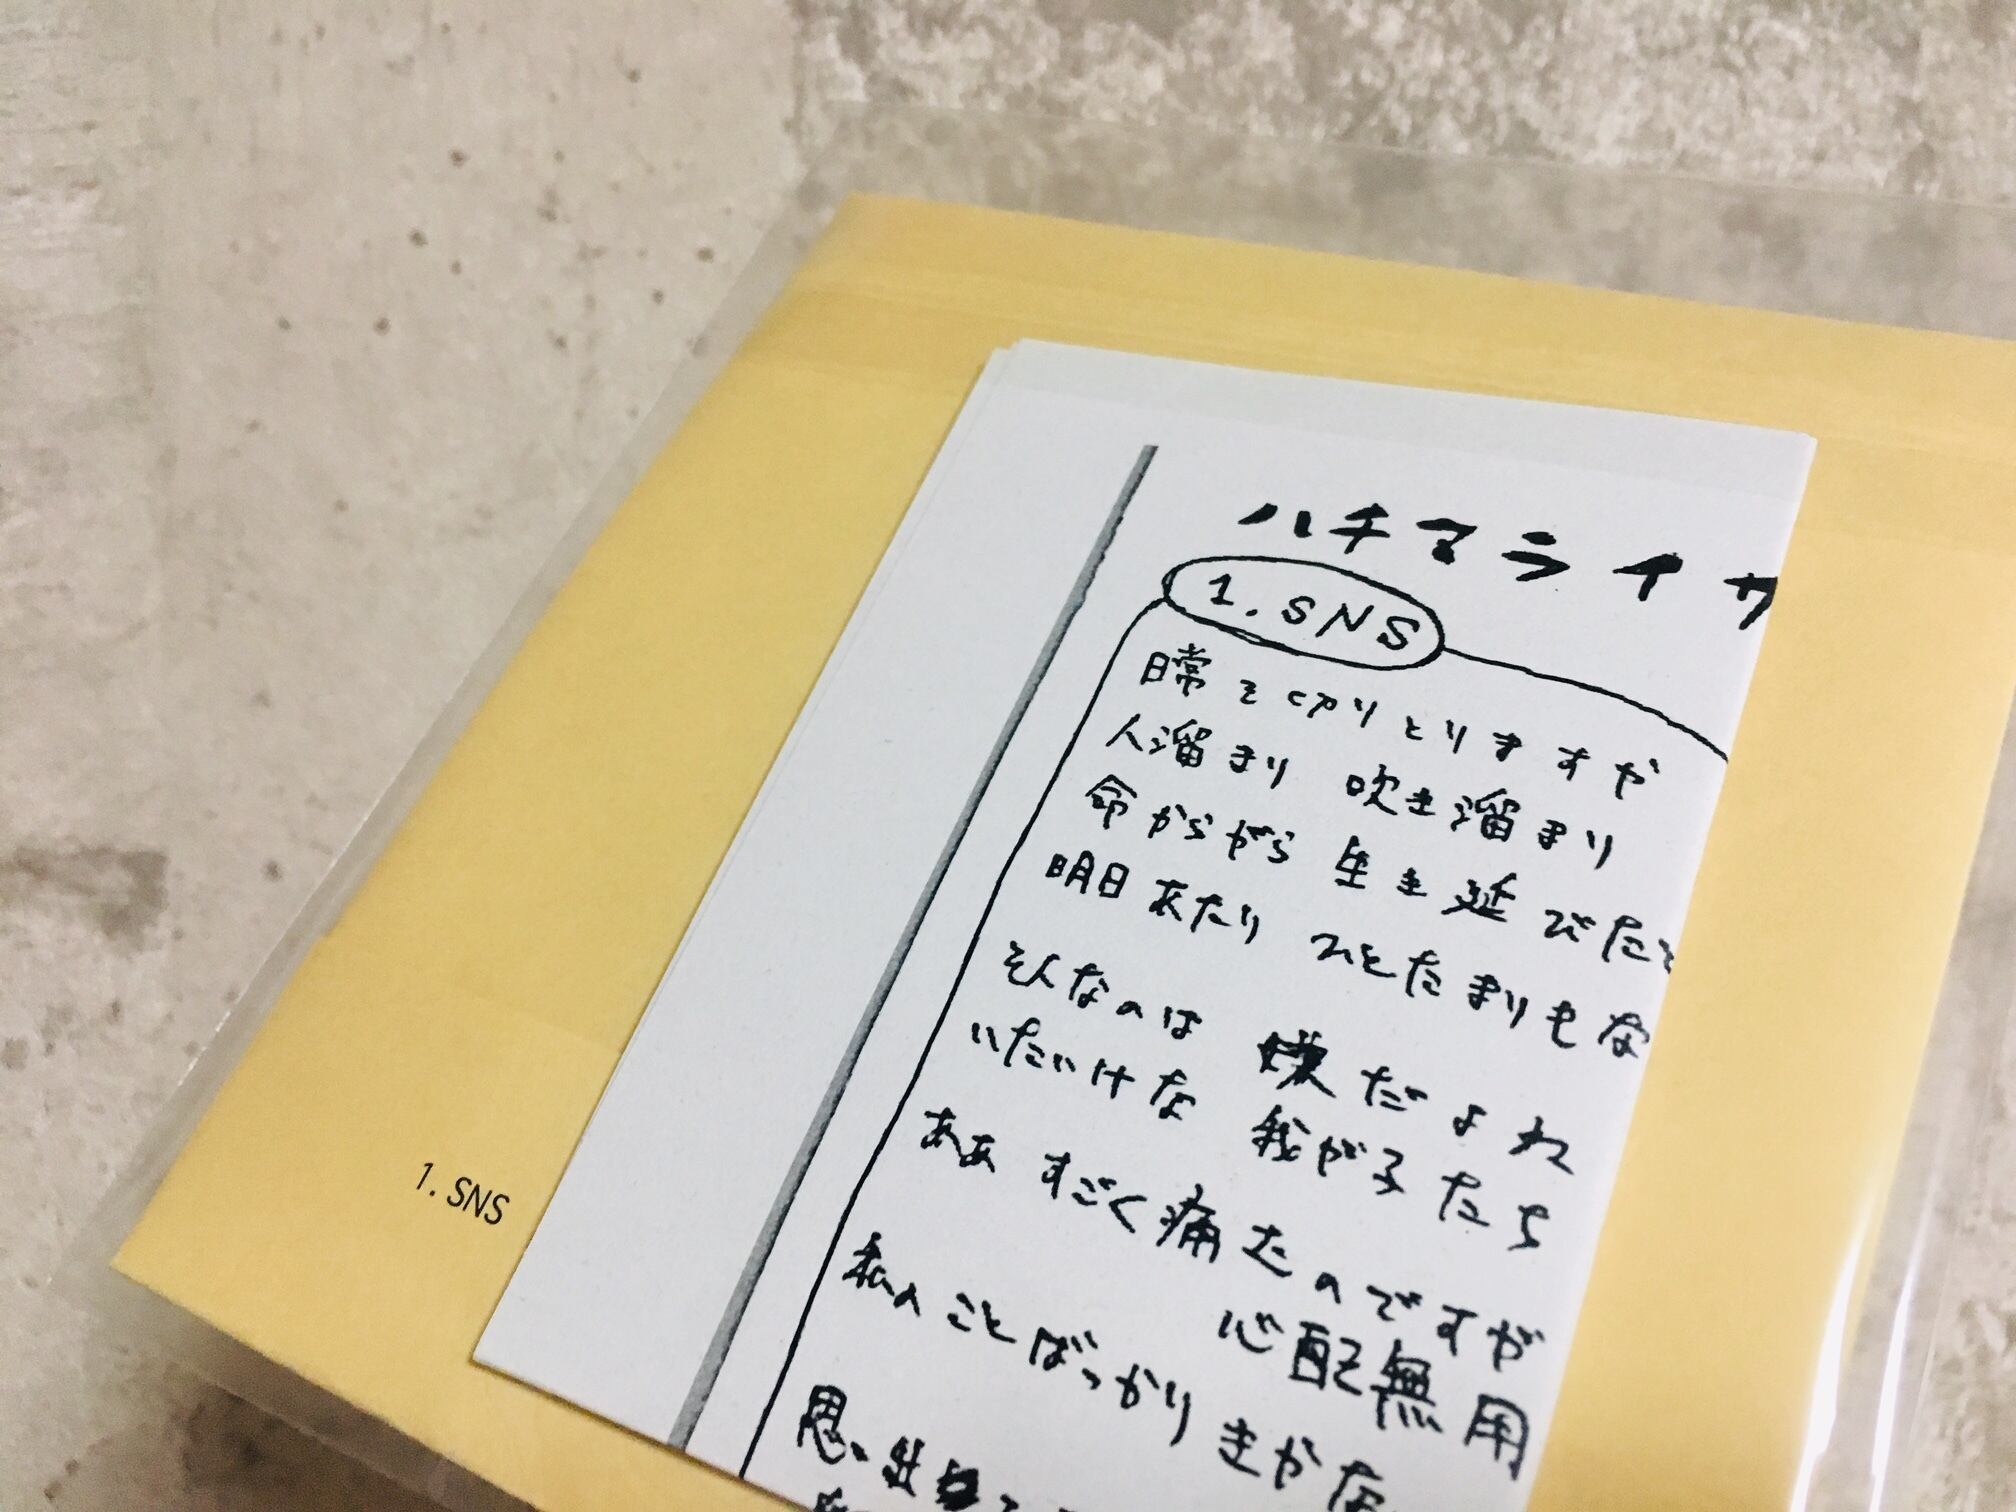 ハチマライサ
1. SNS
日常を切りとりますか
人溜まり 吹き溜まり
命からがら 生き延びた
明日あたり ひとたまりもな
そんなのは 嫌だよね
いたいけな 我が子たち
ああ すごく痛むのですが
心配無用
私のことばっかり きかな
思い出
1. SNS